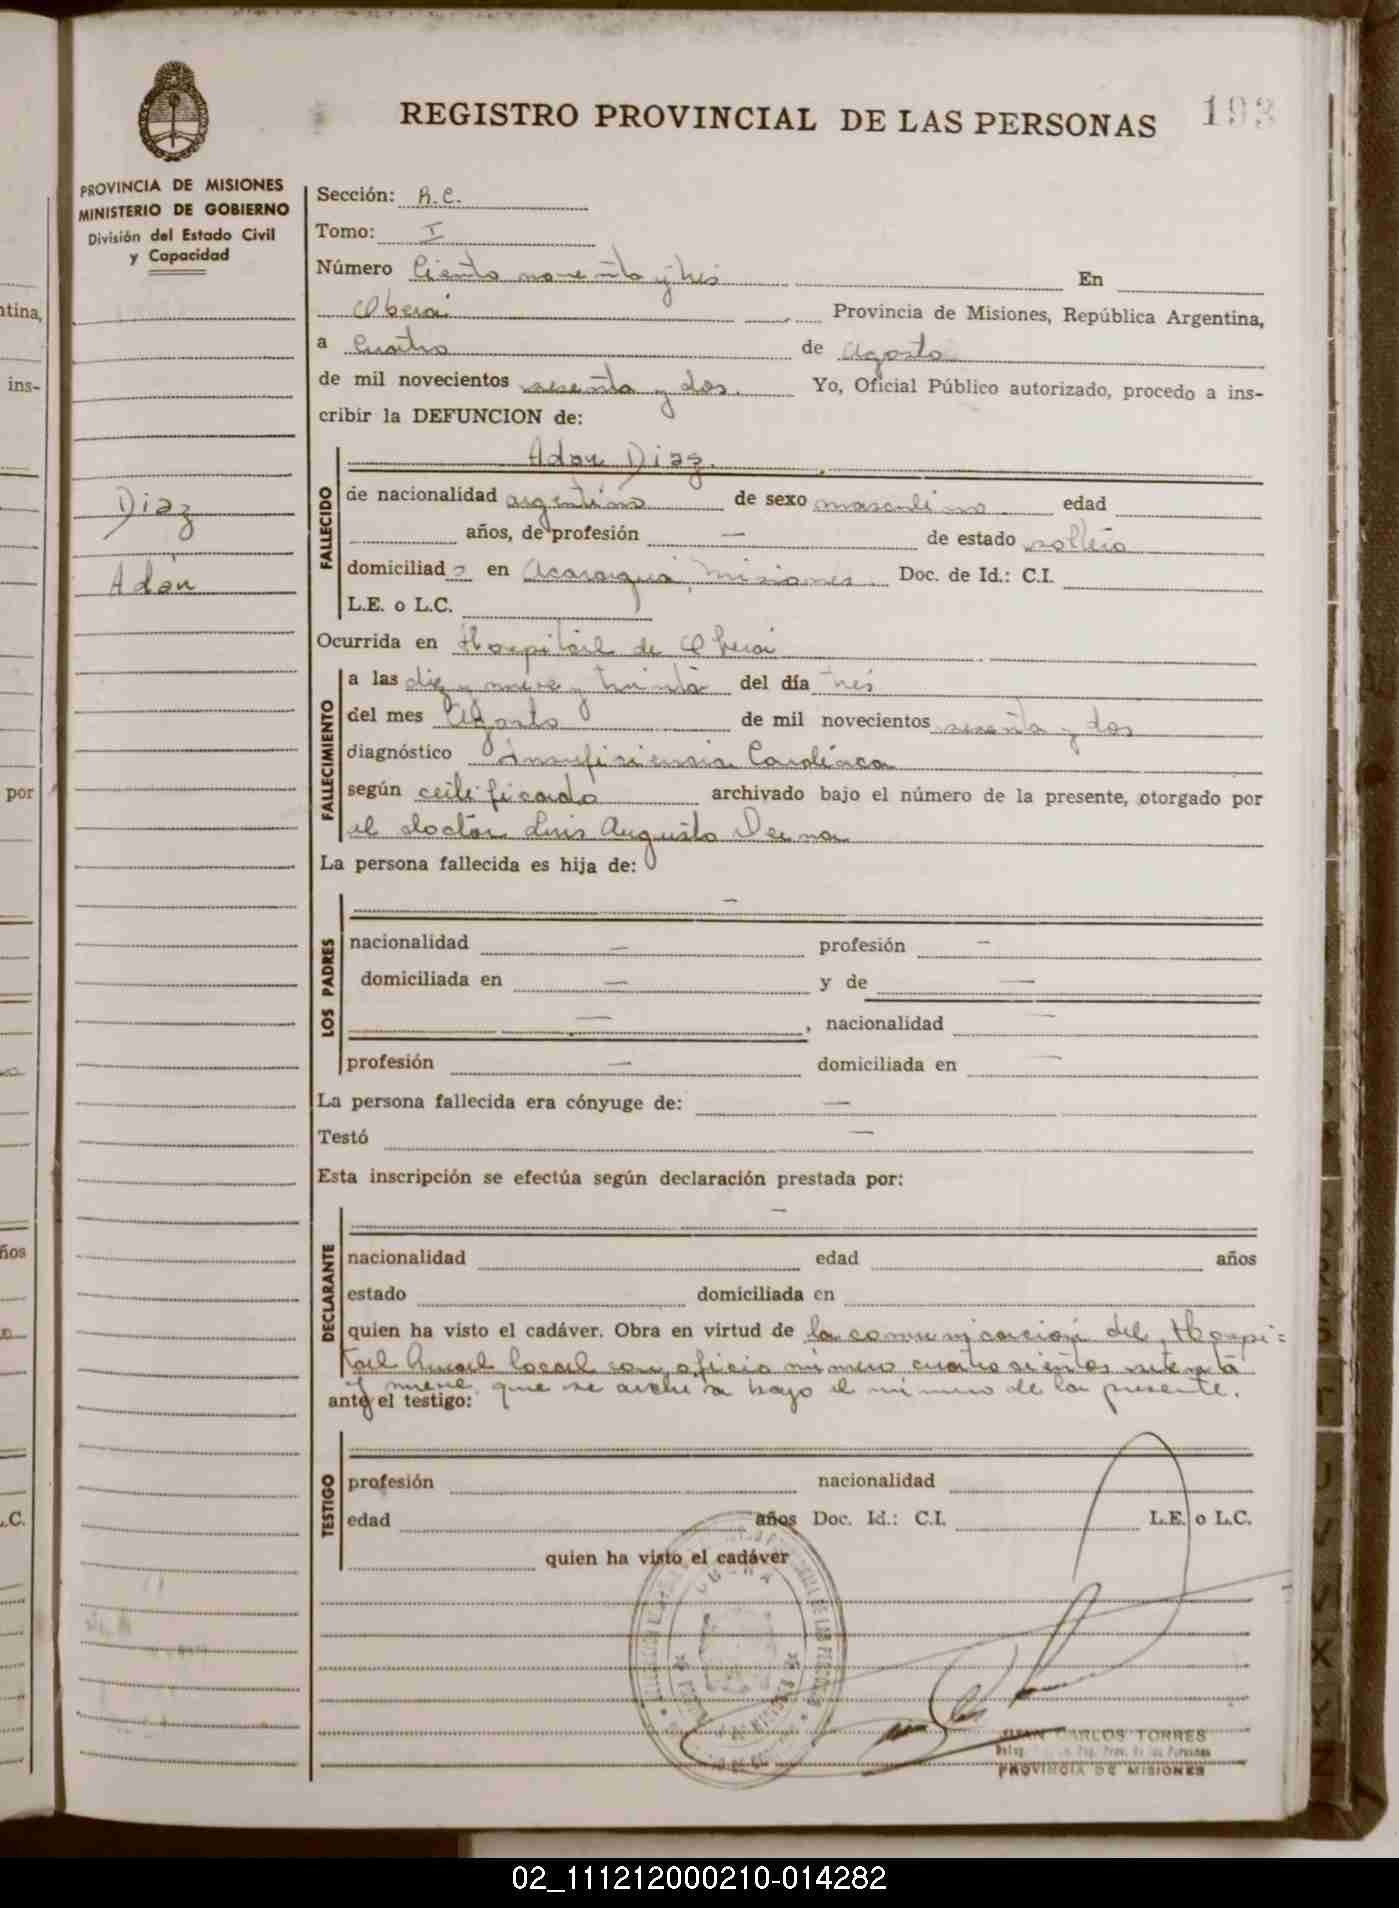 REGISTRO PROVINCIAL DE LAS PERSONAS
193
PROVINCIA DE MISIONES
MINISTERIO DE GOBIERNO
División del Estado Civil
y Capacidad
Díaz
Adán
Sección: R.C.
Tomo: I
Número Ciento noventa y tres En
Oberá Provincia de Misiones, República Argentina,
a Cuatro de Agosto
de mil novecientos sesenta y dos. Yo, Oficial Público autorizado, procedo a ins-
cribir la DEFUNCION de:
FALLECIDO
Adan Diaz.
de nacionalidad argentino de sexo masculino edad
años, de profesión — de estado soltero
domiciliado en Acaragua, Misiones. Doc. de Id.: C.I.
L.E. o L.C.
Ocurrida en Hospital de Oberá
FALLECIMIENTO
a las diez y nueve y treinta del día tres
del mes Agosto de mil novecientos sesenta y dos
diagnóstico Insufisiensia Cardíaca
según certificado archivado bajo el número de la presente, otorgado por
el doctor Luis Augusto
La persona fallecida es hija de:
LOS PADRES
—
nacionalidad — profesión —
domiciliada en — y de —
—, nacionalidad —
profesión — domiciliada en —
La persona fallecida era cónyuge de: —
Testó —
Esta inscripción se efectúa según declaración prestada por:
DECLARANTE
—
nacionalidad edad años
estado domiciliada en
quien ha visto el cadáver. Obra en virtud de la comunicación del Hospi=
tal local con oficio número cuatrosientos setenta
y nueve que se archiva bajo el número de la presente.
ante el testigo:
TESTIGO
profesión nacionalidad
edad años Doc. Id.: C.I. L.E. o L.C.
quien ha visto el cadáver
OBERA
JUAN CARLOS TORRES
Prov. de las Personas
PROVINCIA DE MISIONES
tina,
ins-
por
ños
.C.
02_111212000210-014282